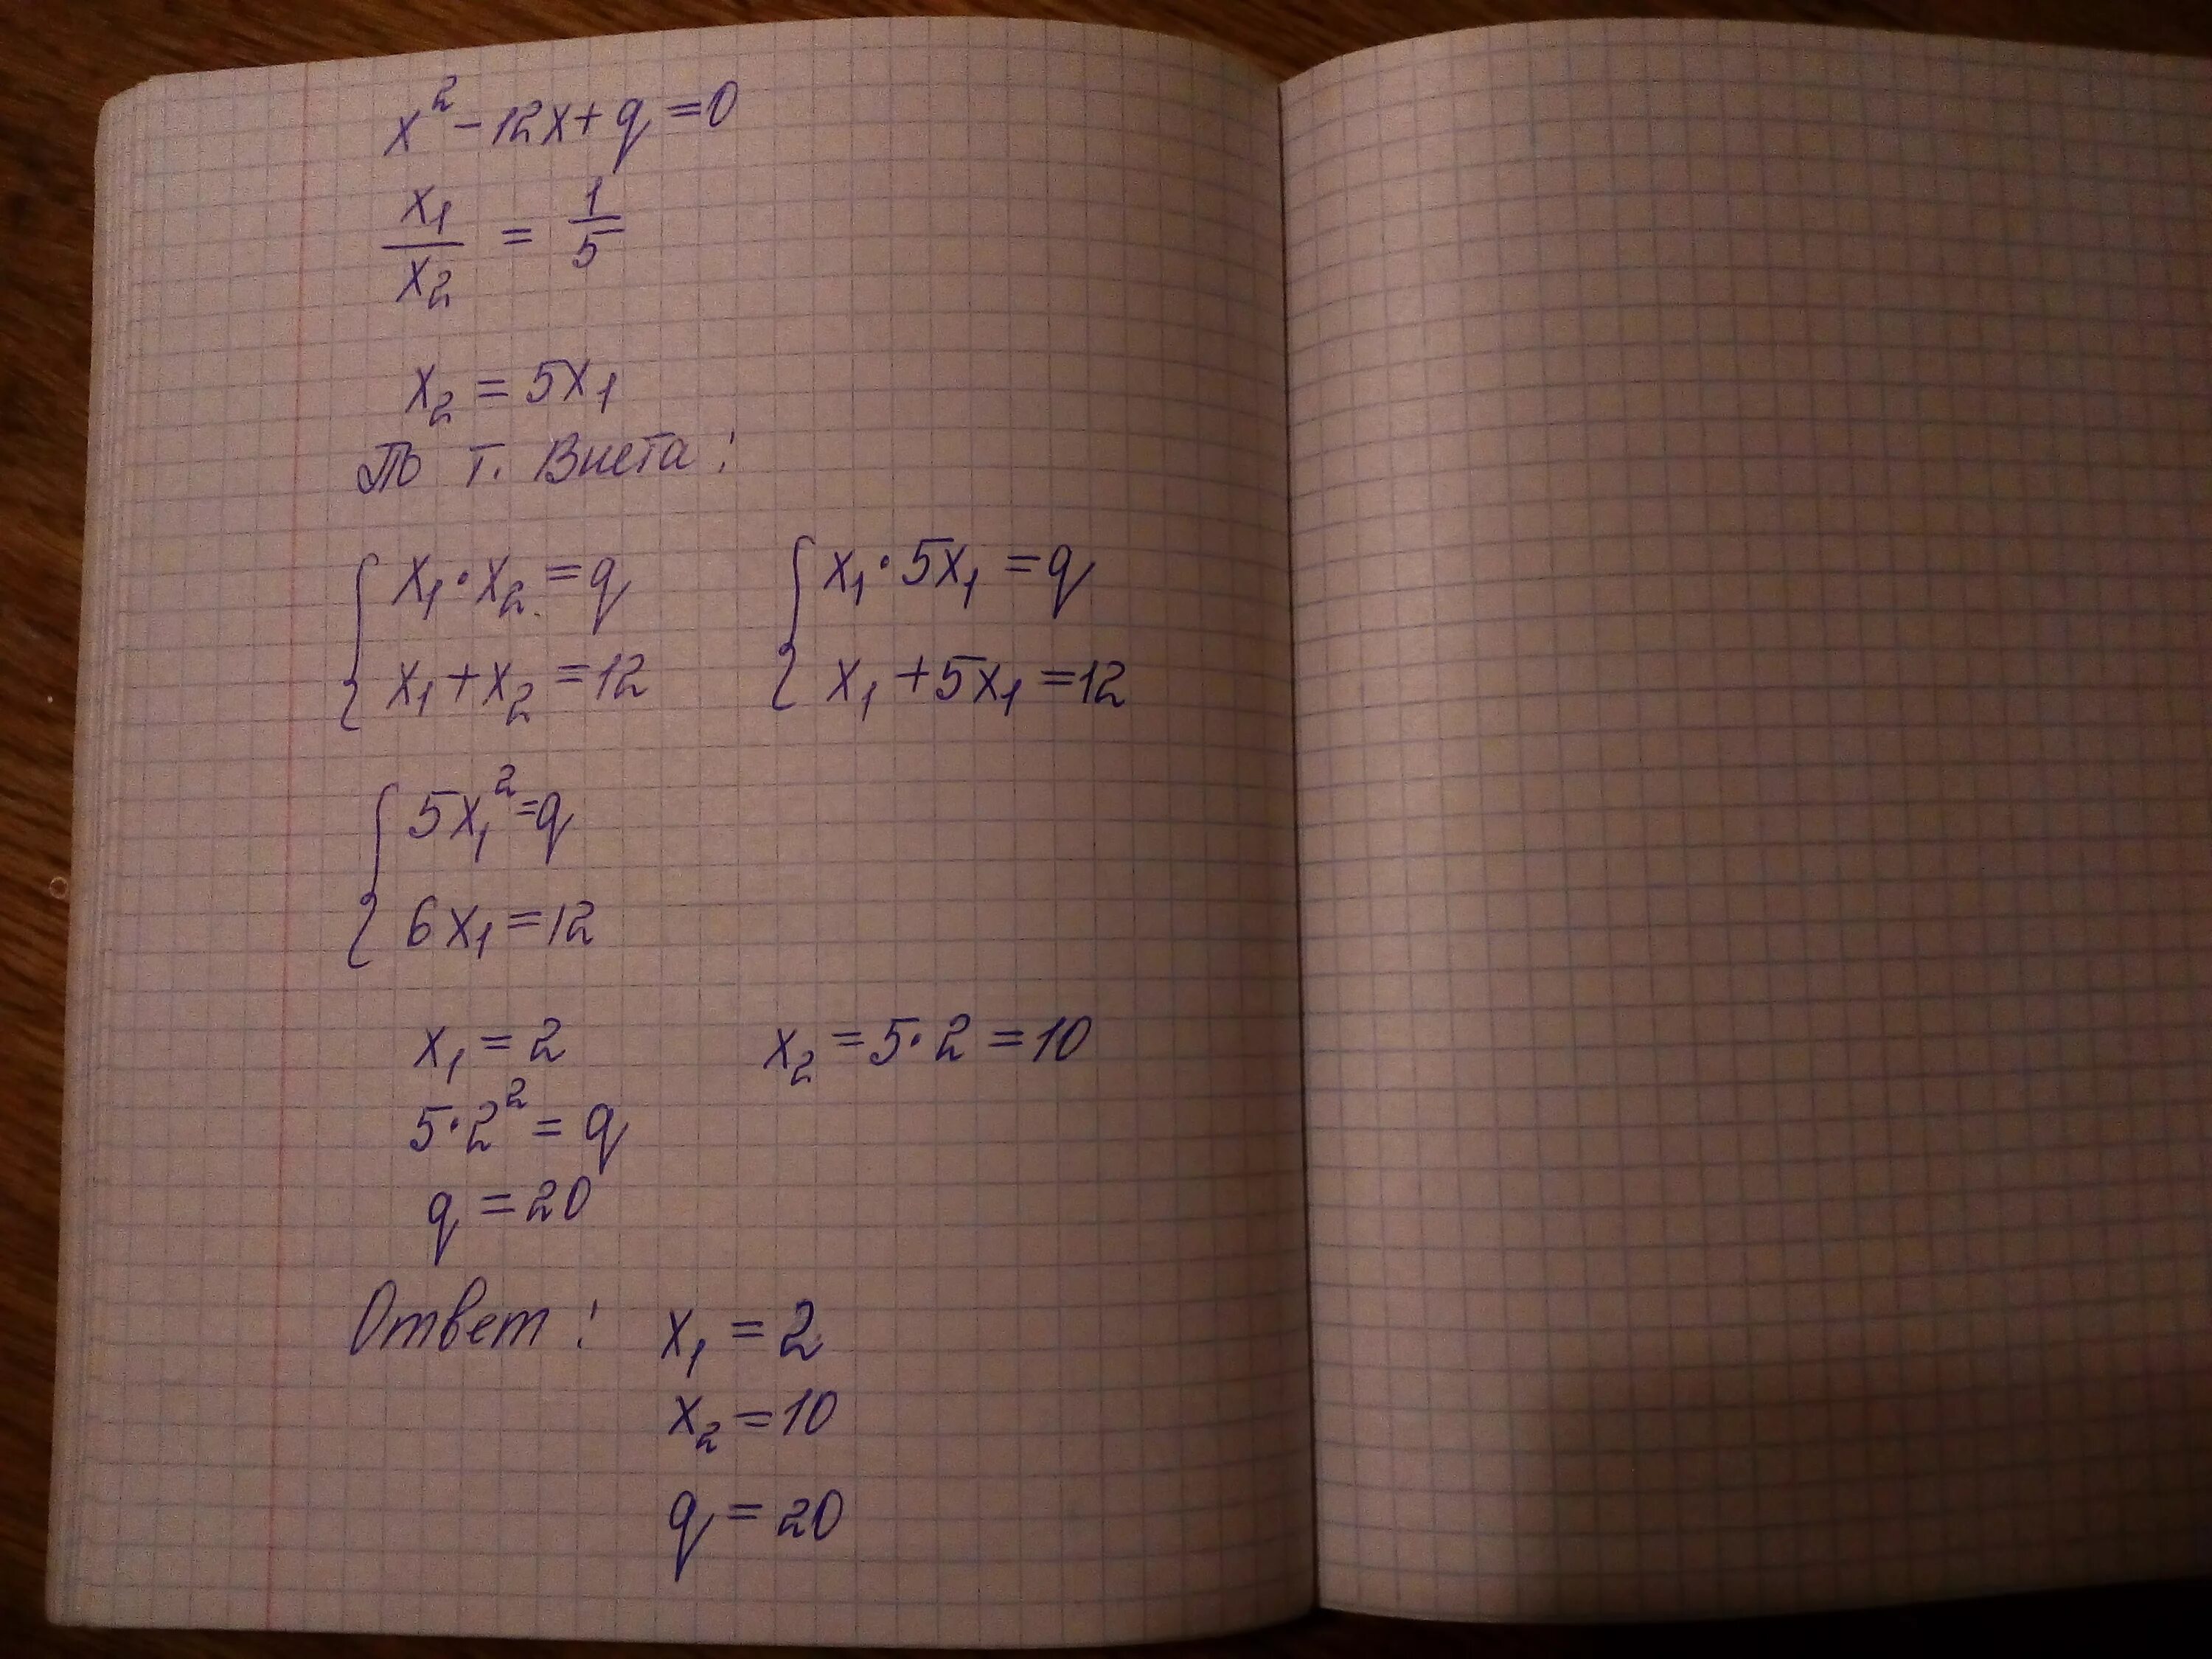 x² - 12x + q = 0
x₁/x₂ = 1/5
x₂ = 5x₁
По т. Виета:
{ x₁ · x₂ = q { x₁ · 5x₁ = q
{ x₁ + x₂ = 12 { x₁ + 5x₁ = 12
{ 5x₁² = q
{ 6x₁ = 12
x₁ = 2 x₂ = 5 · 2 = 10
5 · 2² = q
q = 20
Ответ: x₁ = 2
x₂ = 10
q = 20